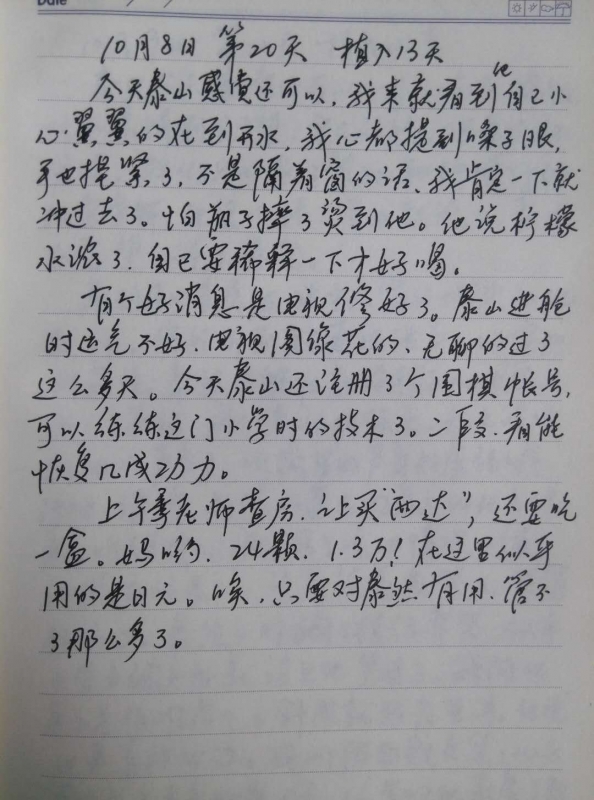 Date
10月8日 第20天 植入13天
今天泰山感觉还可以,我来就看到他自己小
心翼翼的在到开水,我心都提到嗓子眼,
手也捏紧了,不是隔着窗的话、我肯定一下就
冲过去了。怕瓶子摔了烫到他。他说柠檬
水浓了.自已要稀释一下才好喝。
有个好消息是电视修好了。泰山进舱
时运气不好.电视图像花的、无聊的过了
这么多天。今天泰山还注册了个围棋帐号,
可以练练这门小学时的技术了。二段.看能
恢复几成功力。
上午李老师查房.让买"西达",还要吃
一盒。妈哟.24颗.1.3万!在这里似乎
用的是日元。唉.只要对泰然有用.管不
了那么多了。